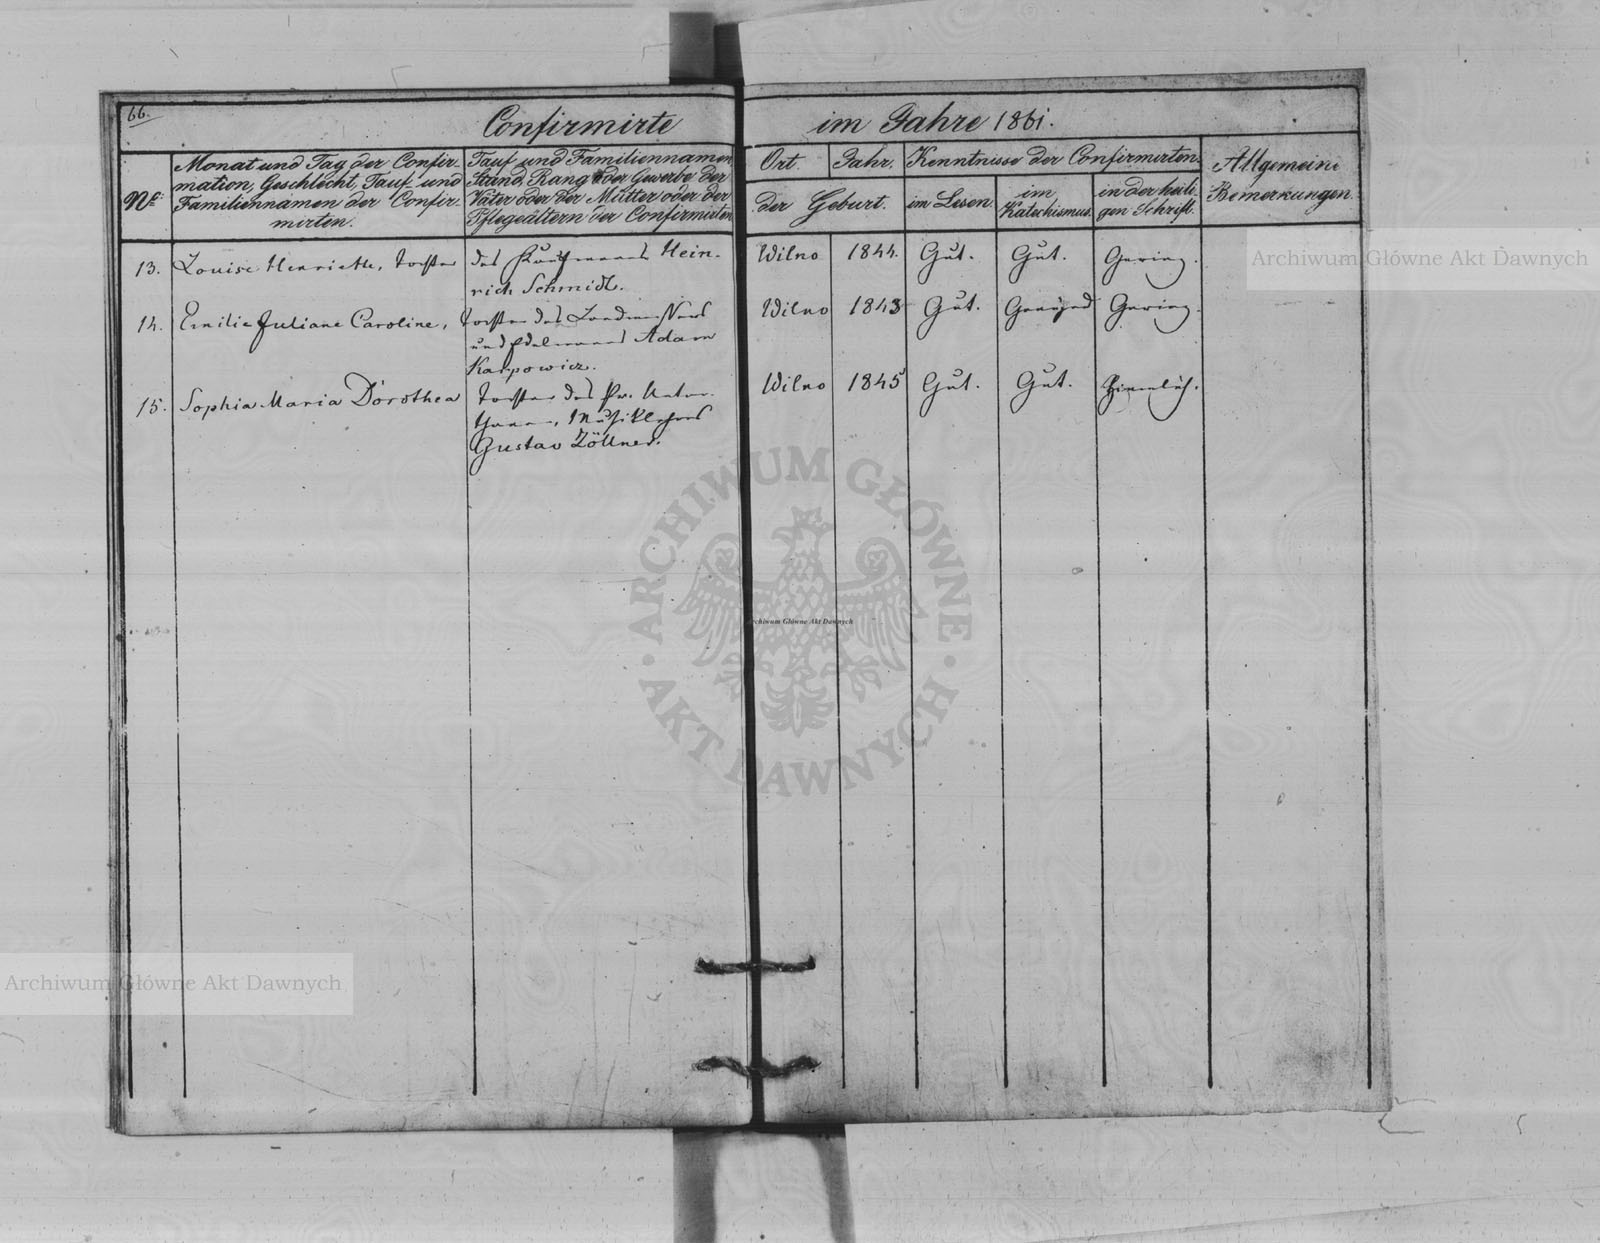 66.
Confirmirte im Jahre 1861.
No.
Monat und Tag der Confir-
mation, Geschlecht, Tauf- und
Familiennamen der Confir-
mirten.
Tauf- und Familiennamen,
Stand, Rang oder Gewerbe der
Väter oder der Mütter oder der
Pflegeältern der Confirmirten
Ort. Jahr.
der Geburt.
Kenntnisse der Confirmirten
im Lesen.
im
Katechismus.
in der heili-
gen Schrift.
Allgemeine
Bemerkungen.
13. Louise Henriette, Tochter des Kaufmanns Hein- Wilno 1844. Gut. Gut. Gering.
rich Schmidt.
14. Emilie Juliane Caroline, Tochter des Landmessers Wilno 1843 Gut. Genügend Gering.
und Edelmanns Adam
Karpowicz.
15. Sophia Maria Dorothea Tochter des Pr. Unter- Wilno 1845 Gut. Gut. Ziemlich.
thanen, Musiklehrers
Gustav Zöllner.
Archiwum Główne Akt Dawnych
ARCHIWUM GŁÓWNE
AKT DAWNYCH
Archiwum Główne Akt Dawnych
Archiwum Główne Akt Dawnych